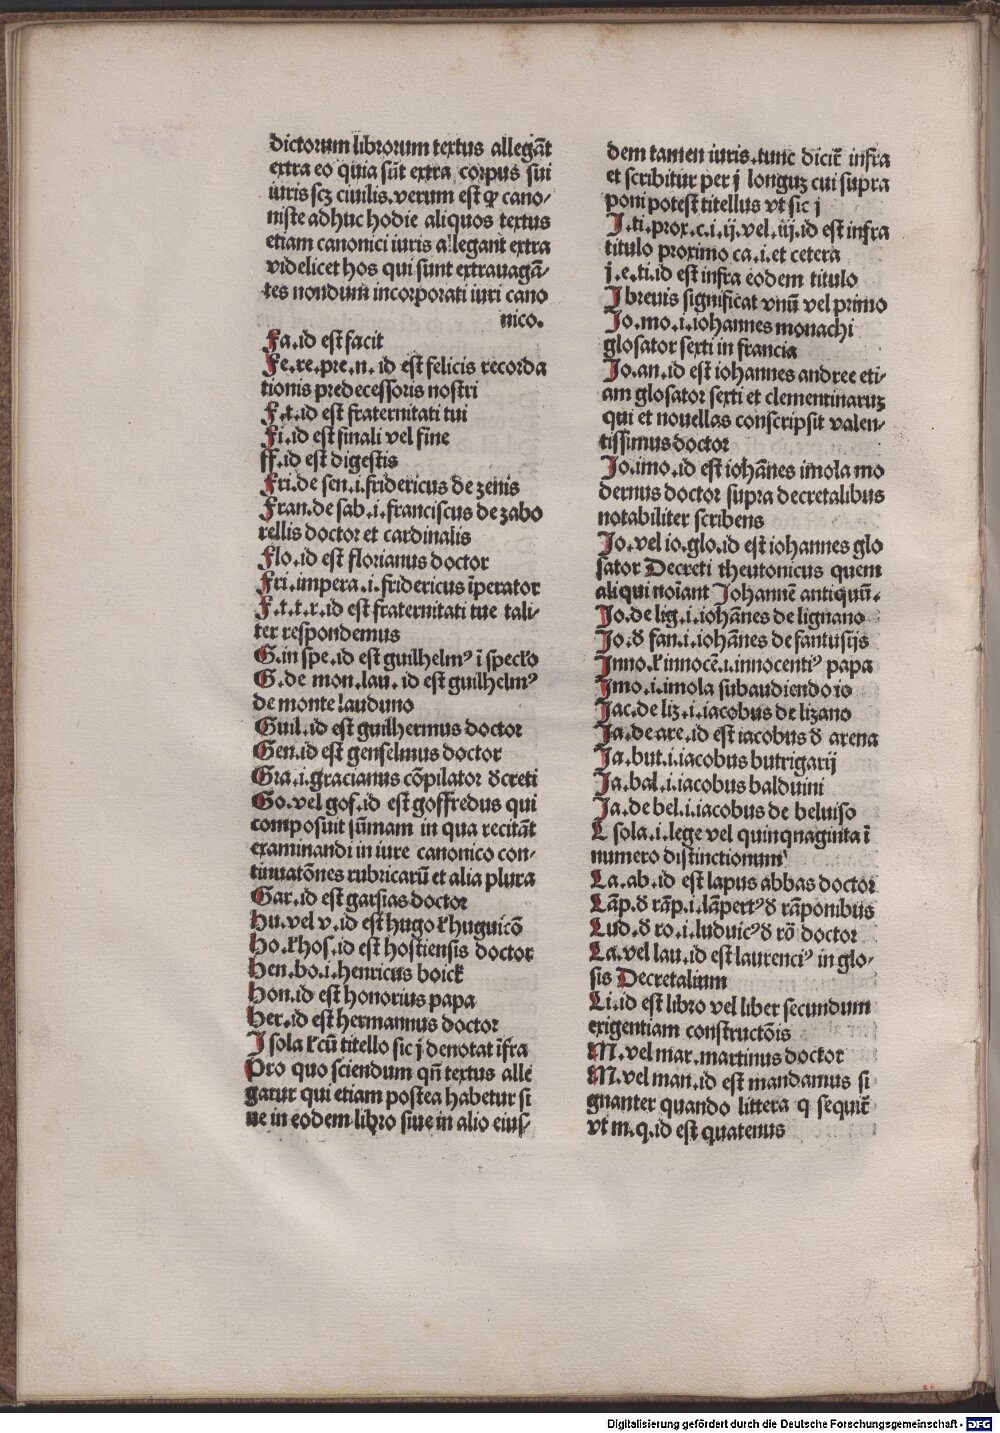 dictorum librorum textus allegāt
extra eo quia sūt extra corpus sui
iuris scꝫ ciuilis.verum est ꝙ cano-
niste adhuc hodie aliquos textus
etiam canonici iuris allegant extra
videlicet hos qui sunt extrauagā-
tes nondum incorporati iuri cano
nico.
Fa.id est facit
Fe.re.pre.n. id est felicis recorda
tionis predecessoris nostri
F.t.id est fraternitati tui
Fi.id est finali vel fine
ff.id est digestis
Fri.de sen.i.fridericus de zenis
Fran.de sab.i.franciscus de zabo
rellis doctor et cardinalis
Flo.id est florianus doctor
Fri.impera.i.fridericus īperator
F.t.t.r.id est fraternitati tue tali-
ter respondemus
G.in spe.id est guilhelmꝰ ī speclo
G.de mon.lau. id est guilhelmꝰ
de monte lauduno
Guil.id est guilhermus doctor
Gen.id est genselmus doctor
Gra.i.gracianus cōpilator dcreti
Go.vel gof.id est goffredus qui
composuit sūmam in qua recitāt
examinandi in iure canonico con-
tinuatōnes rubricarū et alia plura
Gar.id est garsias doctor
Hu.vel v.id est hugo ł huguicō
Ho.ł hos.id est hostiensis doctor
Hen.bo.i.henricus boick
Hon.id est honorius papa
Her.id est hermannus doctor
I sola ł cū titello sic j denotat īfra
Pro quo sciendum qn̄ textus alle
gatur qui etiam postea habetur si
ue in eodem libro siue in alio eius-
dem tamen iuris.tunc dicit̄ infra
et scribitur per j longuꝫ cui supra
poni potest titellus vt sic j
J.ti.prox.c.i.ij.vel.iij.id est infra
titulo proximo ca.i.et cetera
j.e.ti.id est infra eodem titulo
I breuis significat vnū vel primo
Jo.mo.i.iohannes monachi
glosator sexti in francia
Jo.an.id est iohannes andree eti-
am glosator sexti et clementinaruꝫ
qui et nouellas conscripsit valen-
tissimus doctor
Jo.imo.id est iohānes imola mo
dernus doctor supra decretalibus
notabiliter scribens
Jo.vel io.glo.id est iohannes glo
sator Decreti theutonicus quem
aliqui noīant Johannē antiquū.
Jo.de lig.i.iohānes de lignano
Jo.d fan.i.iohānes de fantusijs
Inno.ł innocē.i.innocentiꝰ papa
Imo.i.imola subaudiendo io
Jac.de liz.i.iacobus de lizano
Ja.de are.id est iacobus d arena
Ja.but.i.iacobus butrigarij
Ja.bal.i.iacobus balduini
Ja.de bel.i.iacobus de beluiso
L sola.i.lege vel quinqnaginta ī
numero distinctionum
La.ab.id est lapus abbas doctor
Lāp.d rāp.i.lāpertꝰ d rāponibus
Lud.d ro.i.luduicꝰ d rō doctor
La.vel lau.id est laurenciꝰ in glo-
sis Decretalium
Li.id est libro vel liber secundum
exigentiam constructōis
M.vel mar.martinus doctor
M.vel man.id est mandamus si
gnanter quando littera q sequit̄
vt m.q.id est quatenus
Digitalisierung gefördert durch die Deutsche Forschungsgemeinschaft - DFG